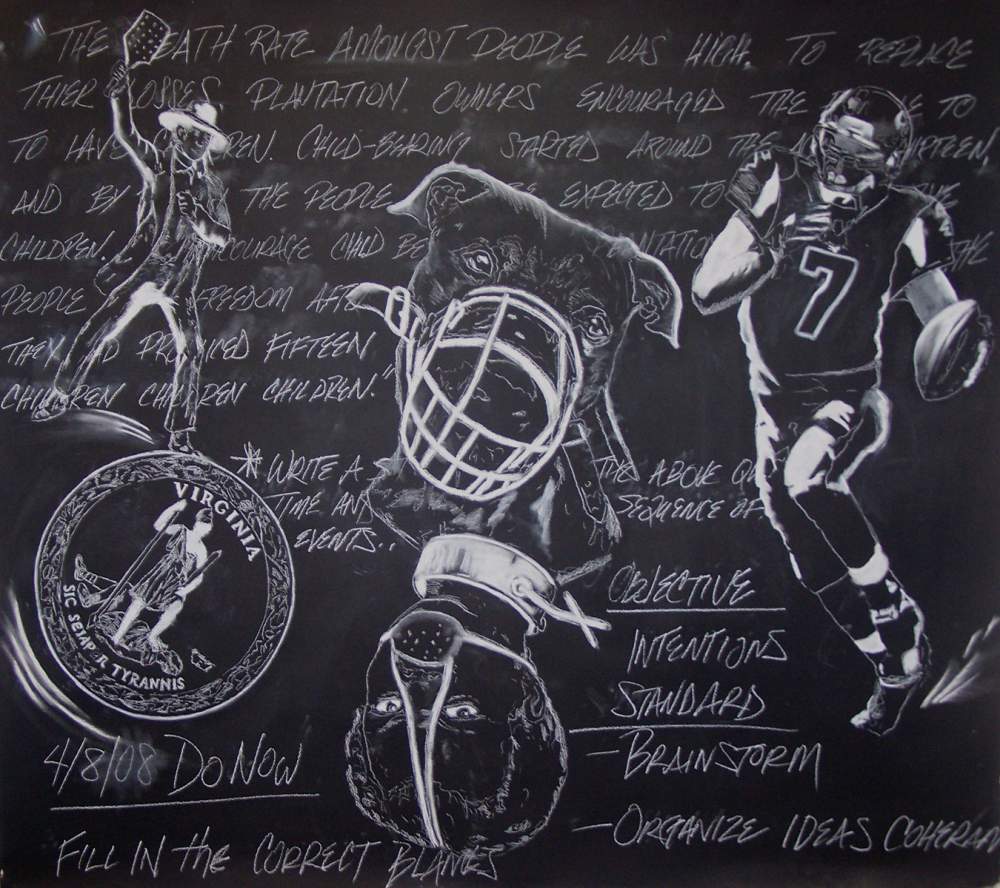 THE DEATH RATE AMONGST PEOPLE WAS HIGH. TO REPLACE
THIER LOSSES PLANTATION OWNERS ENCOURAGED THE TO
TO HAVE CHILDREN. CHILD-BEARING STARTED AROUND THE
AND BY THE PEOPLE EXPECTED TO
CHILDREN. CHILD THE
PEOPLE FREEDOM AFTER
THEY HAD PRODUCED FIFTEEN
CHILDREN CHILDREN CHILDREN."
7
* WRITE A THE ABOVE
TIME AND SEQUENCE OF
EVENTS..
VIRGINIA
SIC SEMPER TYRANNIS
OBJECTIVE
INTENTIONS
STANDARD
- BRAINSTORM
- ORGANIZE IDEAS
4/8/08 DO NOW
FILL IN the CORRECT BLANKS